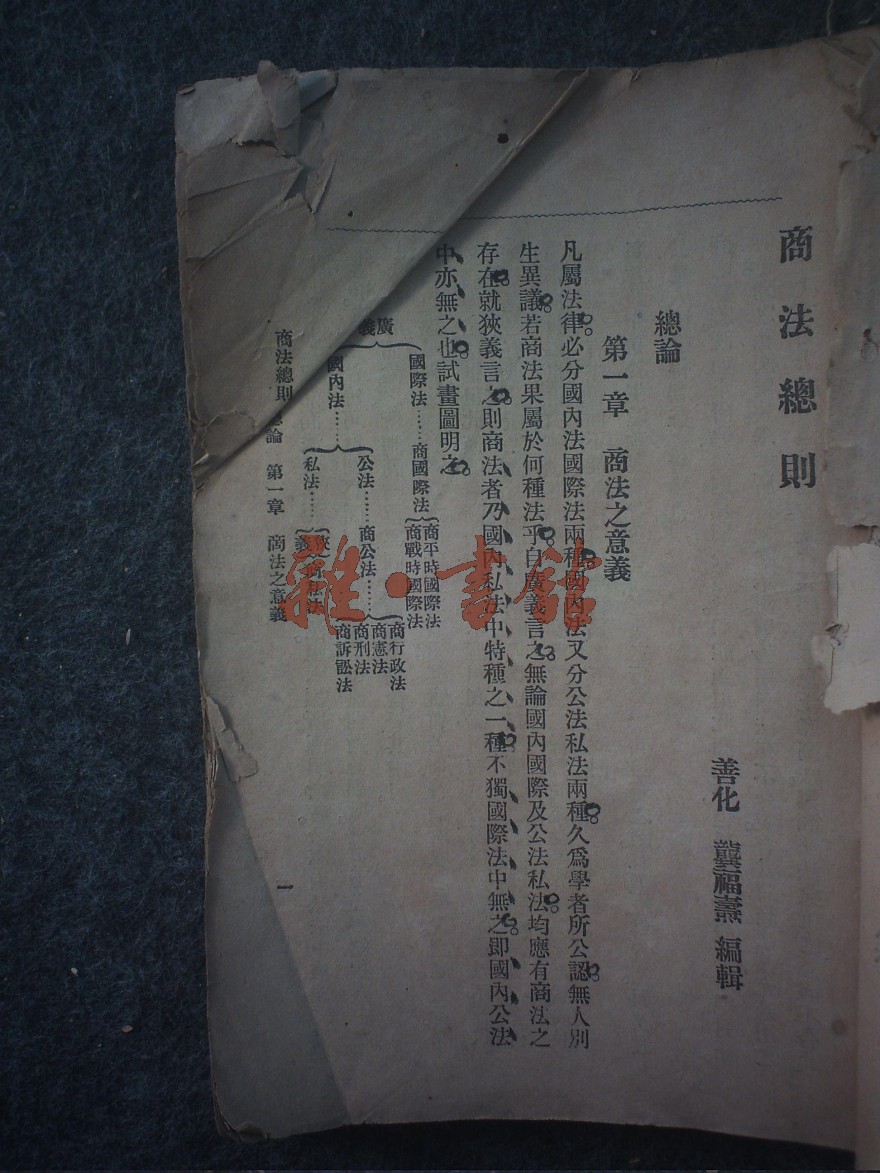 商法總則
善化 龔福燾 編輯
總論
第一章 商法之意義
凡屬法律必分國內法國際法兩種國內法又分公法私法兩種久爲學者所公認無人別
生異議若商法果屬於何種法乎自廣義言之無論國內國際及公法私法均應有商法之
存在就狹義言之則商法者乃國內私法中特種之一種不獨國際法中無之即國內公法
中亦無之也試畫圖明之
廣義
國際法……商國際法
商平時國際法
商戰時國際法
國內法……
公法……商公法……
商行政法
商憲法
商刑法
商訴訟法
私法……
狹義 商私法
商法總則 總論 第一章 商法之意義
一
雜·書館